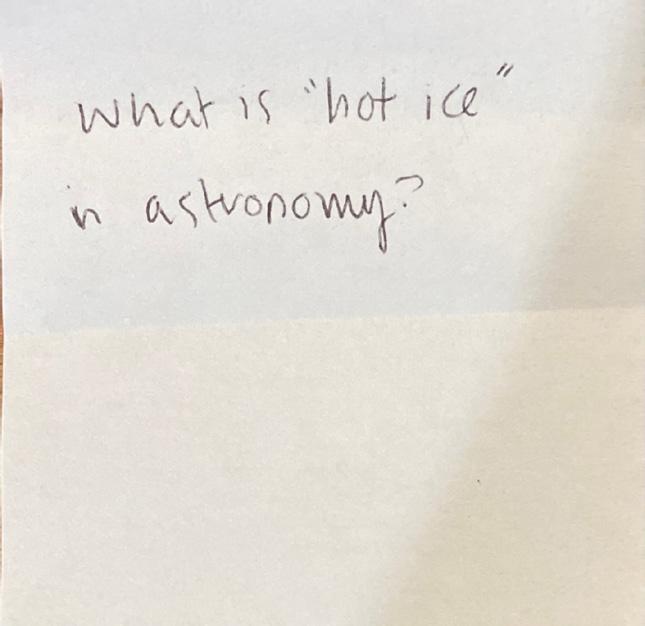 What is "hot ice"
in astronomy?